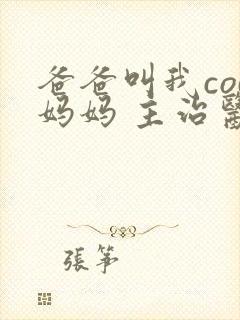 爸爸叫我co
妈妈 主治
張筝